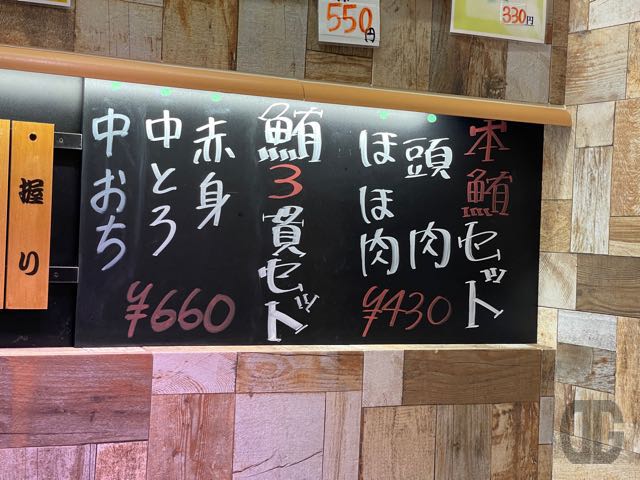 550円
330円
本鮪セット
頭肉
ほほ肉
¥430
鮪3貫セット
赤身
中とろ
中おち
¥660
握り